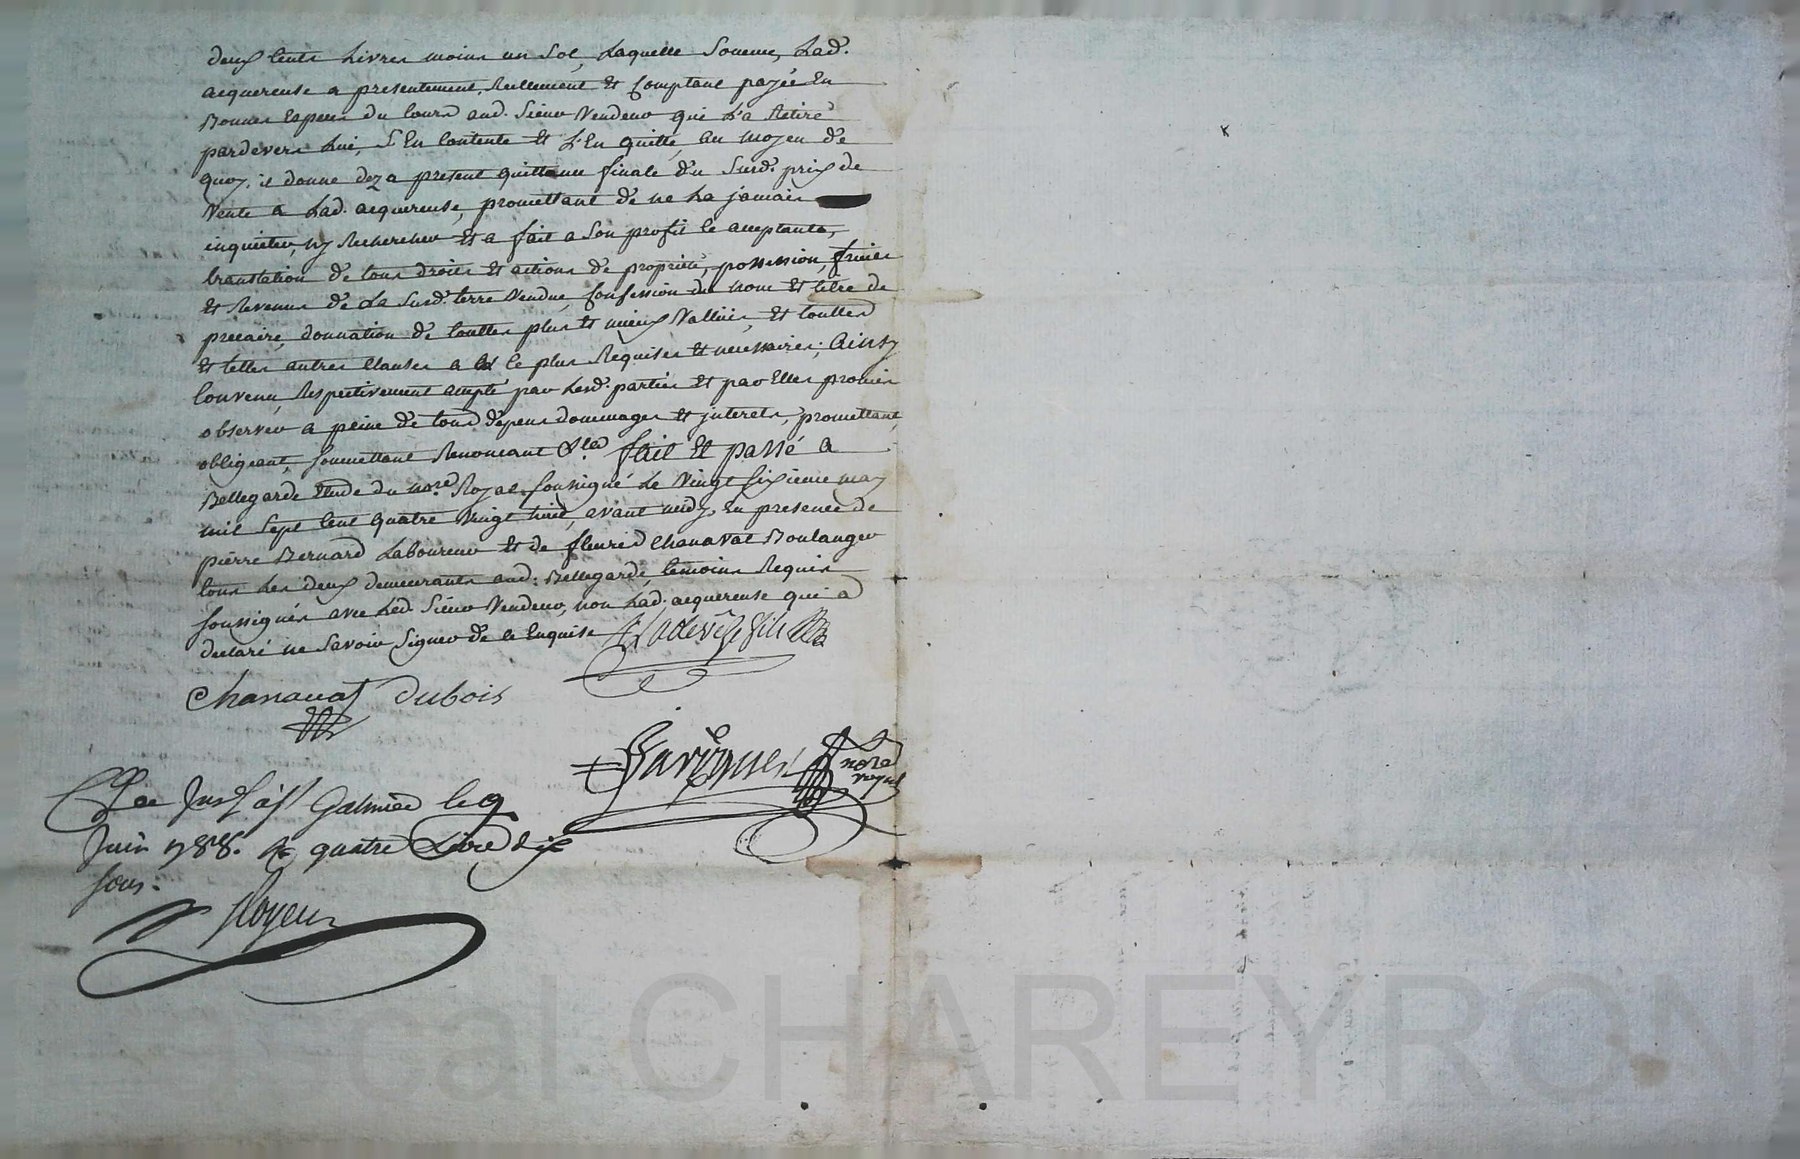 deux cents Livres moins un Sol, Laquelle Somme, Lad.
acquereuse a presentement, Reellement et Comptant payée En
Bonnes Especes du cours aud. Sieur Vendeur qui L'a Retiré
pardevers Lui, S'En Contente et L'En quitte, au moyen de
quoy, il donne dez a present quittance finale du Susd. prix de
Vente a Lad. acquereuse, promettant de ne La jamais
inquieter, ny Rechercher Et a fait a Son profit ce acceptante,
translation de tous droits et actions de propriété, possession, fruits
et Revenus de La Susd. terre Vendue, Confession du nom et titre de
precaire, donnation de touttes plus et mieux Vallues, et touttes
et telles autres Clauses a ce le plus Requises et necessaires; Ainsy
Convenu, Respectivement accepté par Lesd. parties et par Elles promis
observer a peine de tous depens dommages et interets, promettant,
obligeant, soumettant Renonceant &la. fait Et passé a
Bellegarde Etude du nore. Royal soussigné Le Vingt sixieme may
mil Sept Cent quatre Vingt huit, avant midy, En presence de
pierre Bernard Laboureur et de fleuries Chanavat Boulanger
tous Les deux demeurants aud. Bellegarde, temoins Requis
soussignés avec Led. Sieur Vendeur, non Lad. acquereuse qui a
declaré ne Savoir Signer de ce Enquise
Chanauat Dubois
nore
royal
a st Galmier le 9
Juin 1788. R quatre Livre dix
sous.
Royeur
cal CHAREYRON